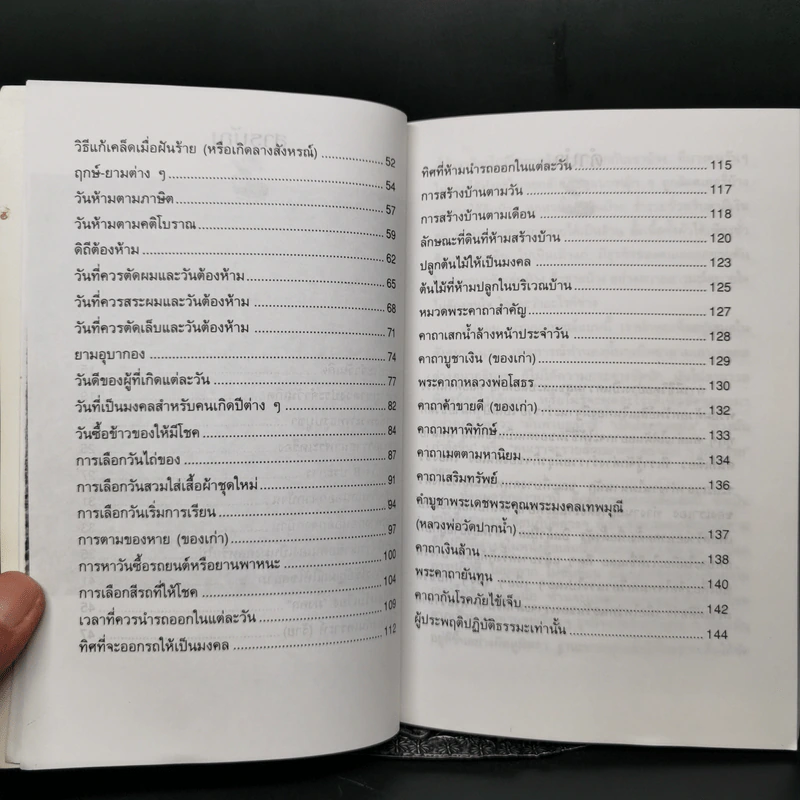 วิธีแก้เคล็ดเมื่อฝันร้าย (หรือเกิดลางสังหรณ์) 52
ฤกษ์-ยามต่าง ๆ 54
วันห้ามตามภาษิต 57
วันห้ามตามคติโบราณ 59
ดิถีต้องห้าม 62
วันที่ควรตัดผมและวันต้องห้าม 65
วันที่ควรสระผมและวันต้องห้าม 68
วันที่ควรตัดเล็บและวันต้องห้าม 71
ยามอุบากอง 74
วันดีของผู้ที่เกิดแต่ละวัน 77
วันที่เป็นมงคลสำหรับคนเกิดปีต่าง ๆ 82
วันซื้อข้าวของให้มีโชค 84
การเลือกวันไถ่ของ 87
การเลือกวันสวมใส่เสื้อผ้าชุดใหม่ 91
การเลือกวันเริ่มการเรียน 94
การตามของหาย (ของเก่า) 97
การหาวันซื้อรถยนต์หรือยานพาหนะ 100
การเลือกสีรถที่ให้โชค 104
เวลาที่ควรนำรถออกในแต่ละวัน 109
ทิศที่จะออกรถให้เป็นมงคล 112
ทิศที่ห้ามนำรถออกในแต่ละวัน 115
การสร้างบ้านตามวัน 117
การสร้างบ้านตามเดือน 118
ลักษณะที่ดินที่ห้ามสร้างบ้าน 120
ปลูกต้นไม้ให้เป็นมงคล 123
ต้นไม้ที่ห้ามปลูกในบริเวณบ้าน 125
หมวดพระคาถาสำคัญ 127
คาถาเสกน้ำล้างหน้าประจำวัน 128
คาถาบูชาเงิน (ของเก่า) 129
พระคาถาหลวงพ่อโสธร 130
คาถาค้าขายดี (ของเก่า) 132
คาถามหาพิทักษ์ 133
คาถาเมตตามหานิยม 134
คาถาเสริมทรัพย์ 136
คำบูชาพระเดชพระคุณพระมงคลเทพมุณี
(หลวงพ่อวัดปากน้ำ) 137
คาถาเงินล้าน 138
พระคาถายันทุน 140
คาถากันโรคภัยไข้เจ็บ 142
ผู้ประพฤติปฏิบัติธรรมะเท่านั้น 144